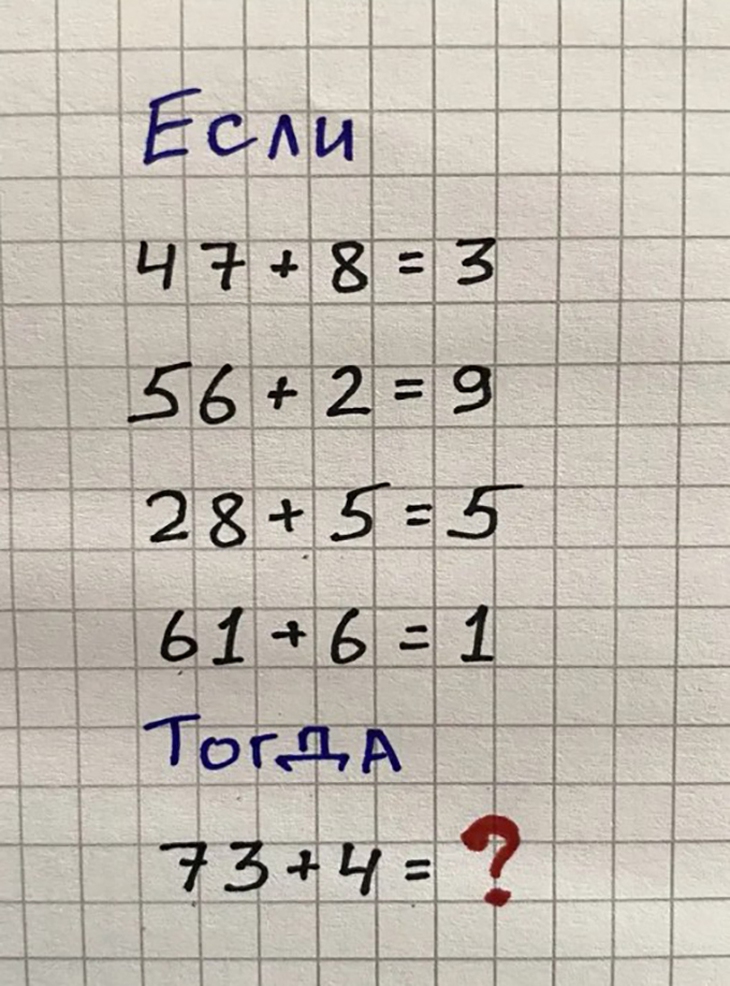 Если
47+8=3
56+2=9
28+5=5
61+6=1
Тогда
73+4=?